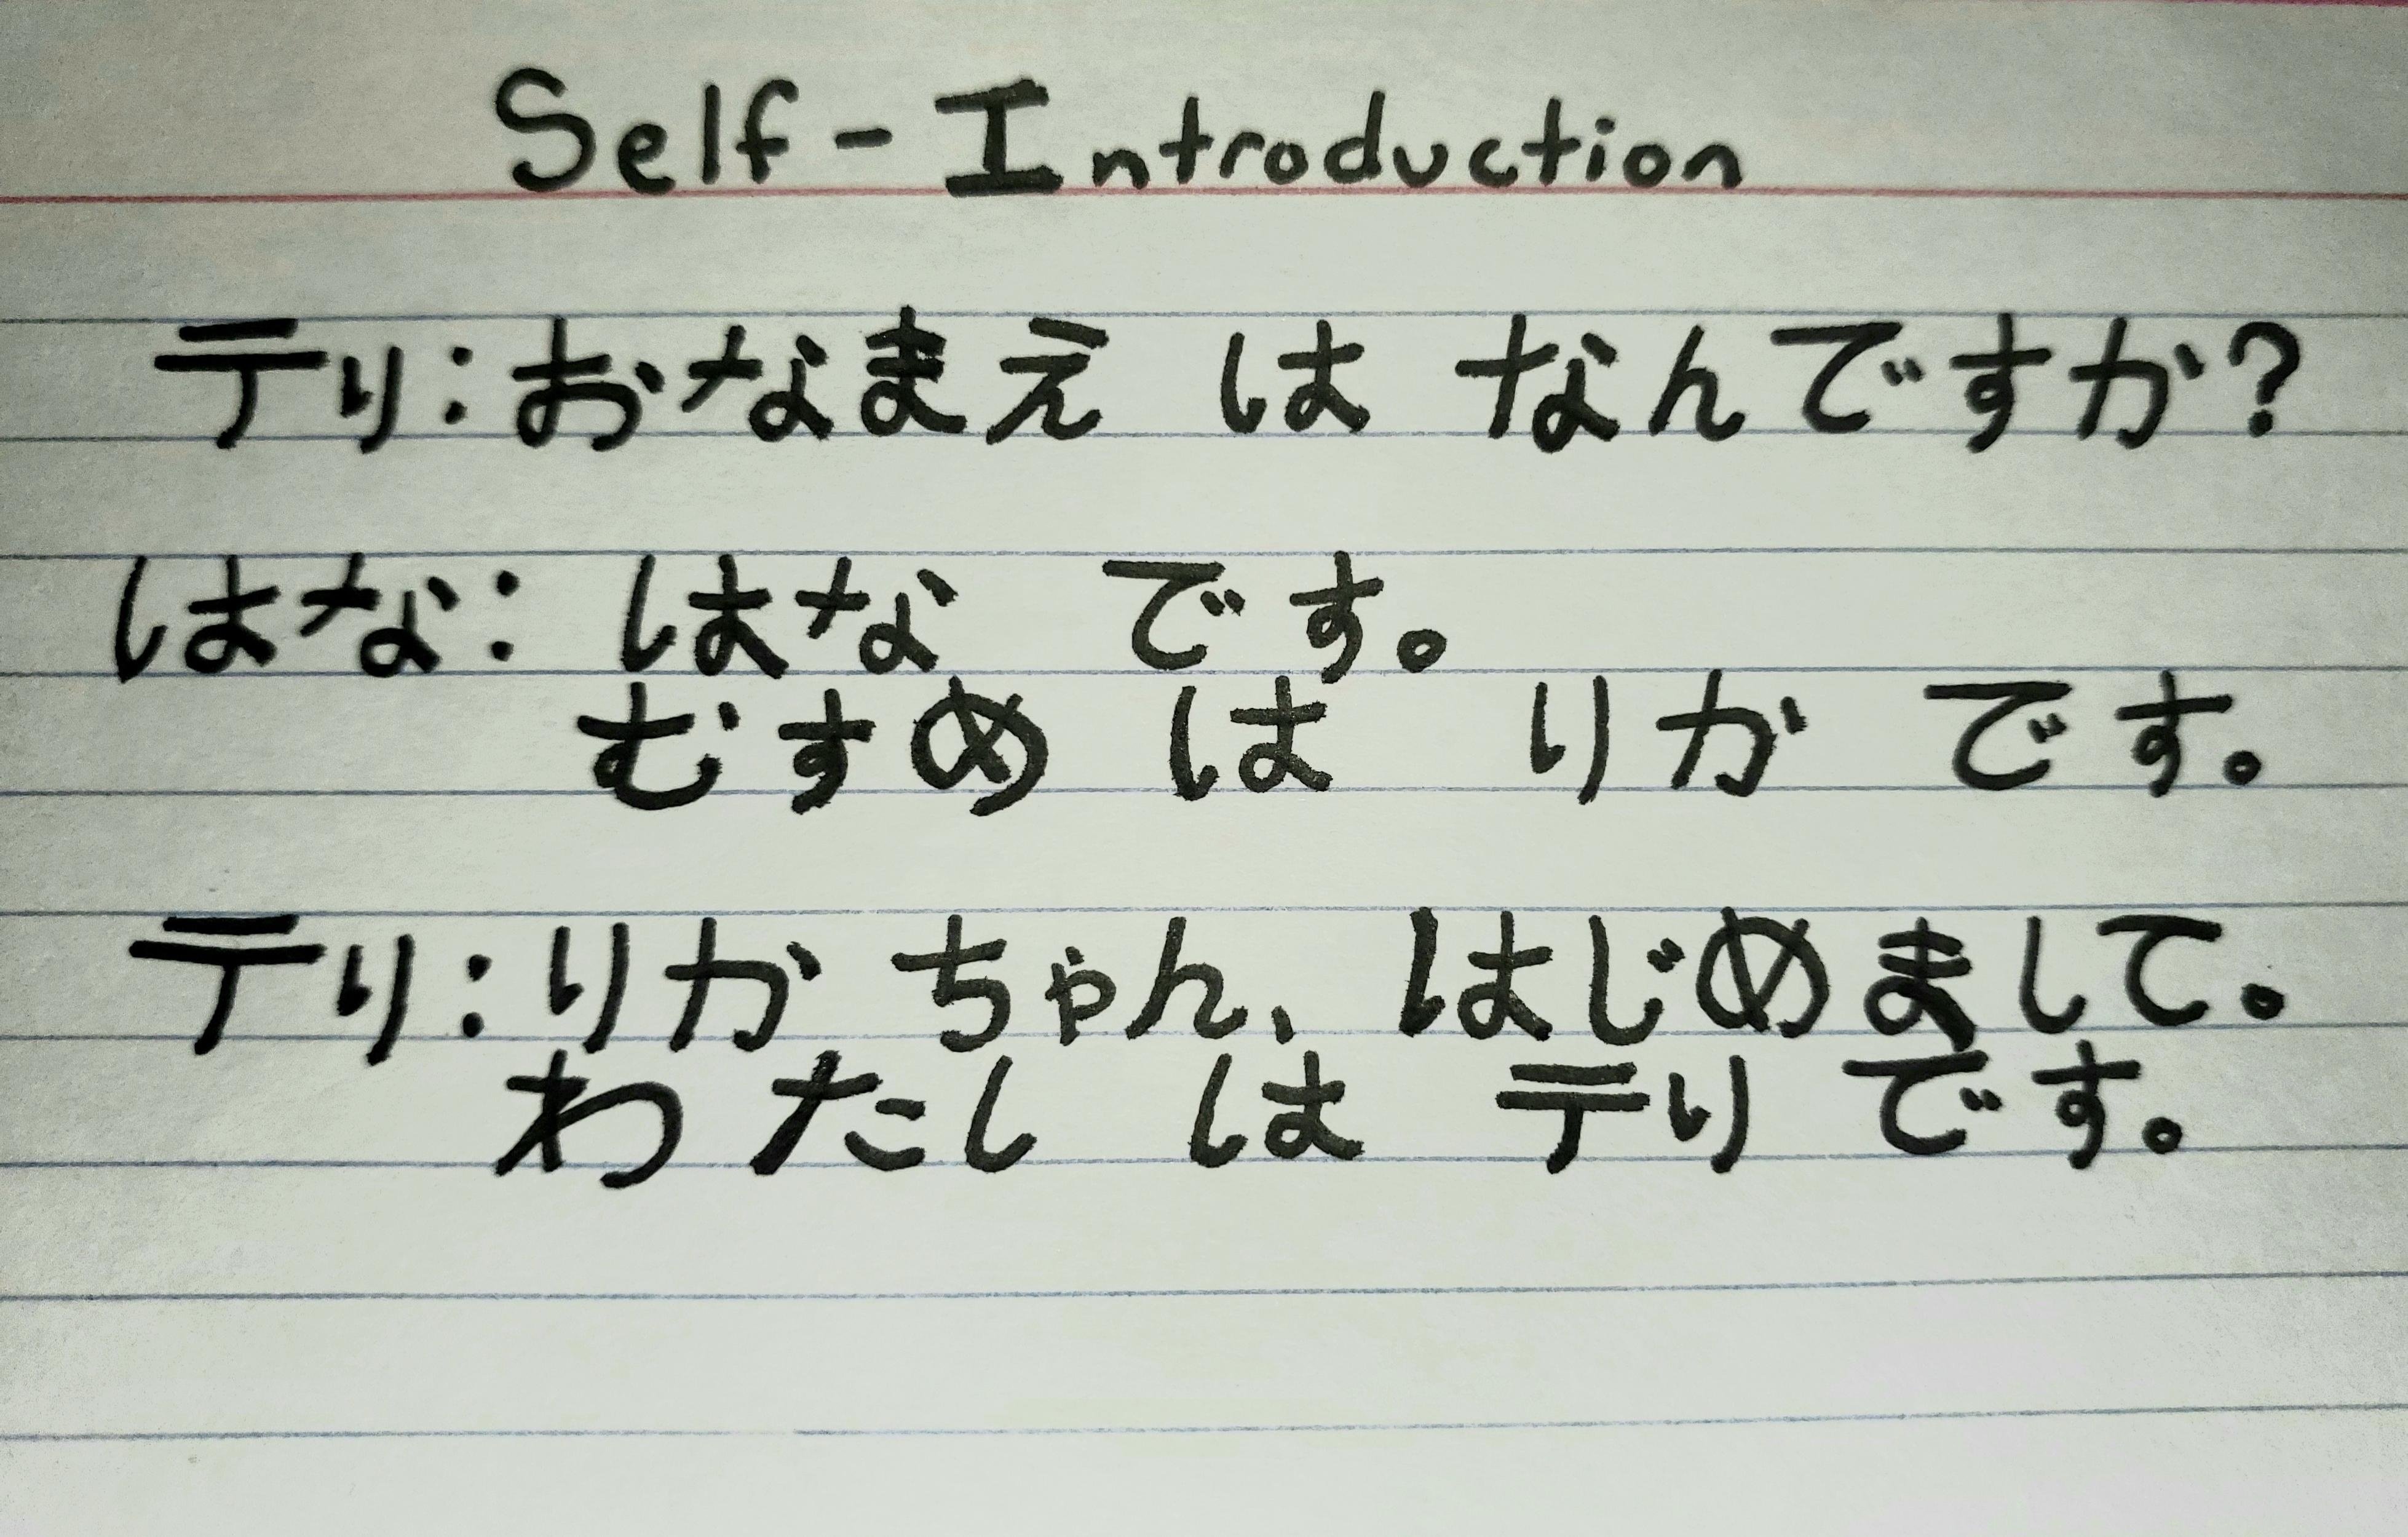 Self-Introduction
テリ:おなまえ は なんですか?
はな: はな です。
むすめ は りか です。
テリ:りか ちゃん、 はじめまして。
わたし は テリ です。